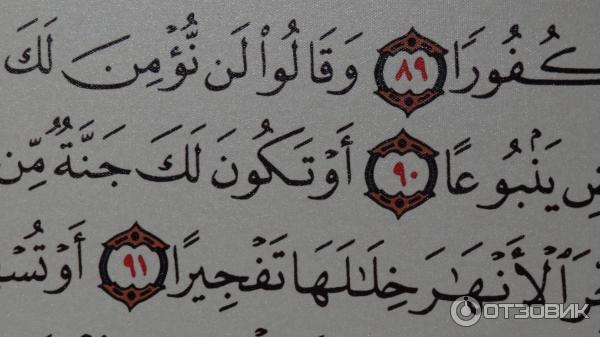 كُفُورًا ٨٩ وَقَالُوا۟ لَن نُّؤْمِنَ لَكَ
يَنۢبُوعًا ٩٠ أَوْ تَكُونَ لَكَ جَنَّةٌ مِّن
ٱلْأَنْهَـٰرَ خِلَـٰلَهَا تَفْجِيرًا ٩١ أَوْ
ОТЗОВИК